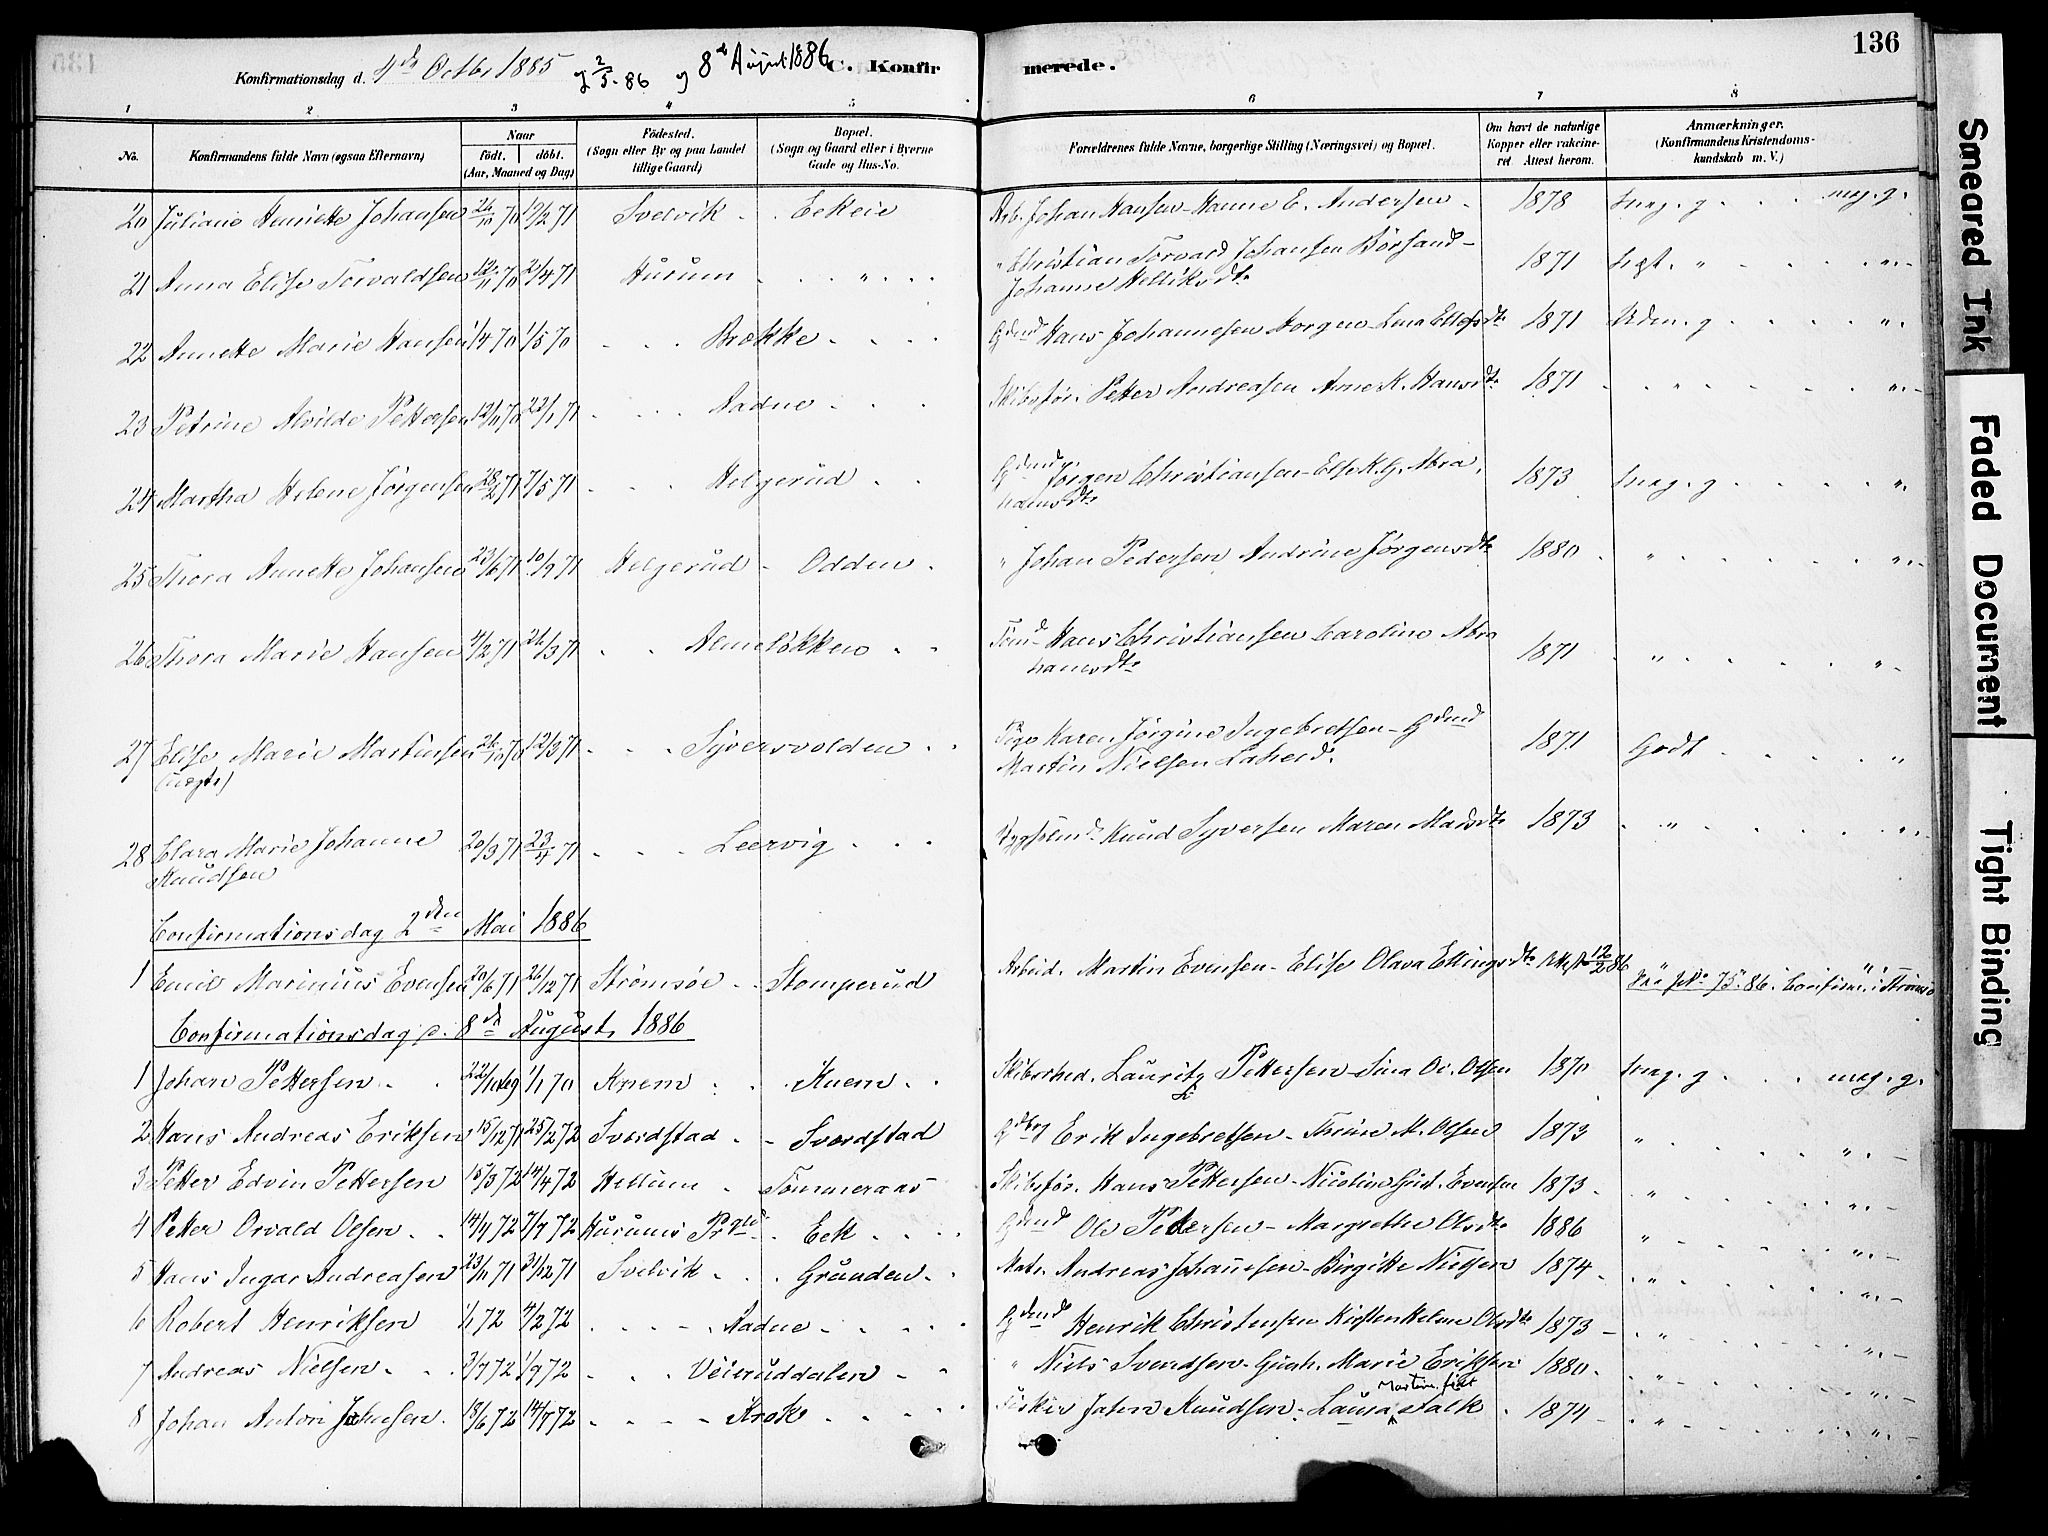 136
Konfirmationsdag d. 4de Octbr 1885 og 2/5-86 og 8de August 1886 C. Konfirmerede.
1 2 3 4 5 6 7 8
No. Konfirmandens fulde Navn (ogsaa Efternavn) Naar født. døbt. (Aar, Maaned og Dag) Fødested. (Sogn eller By og paa Landet tillige Gaard) Bopæl. (Sogn og Gaard eller i Byerne Gade og Hus-No. Forældrenes fulde Navne, borgerlige Stilling (Næringsvei) og Bopæl. Om havt de naturlige Kopper eller vakcineret. Attest herom. Anmærkninger. (Konfirmandens Kristendomskundskab m. V.)
20 Juliane Henriette Johansen 26/10 70 19/2 71 Svelvik Eekeie Arb. Johan Hansen - Hanne E. Andersen 1878 meg. g. meg. g.
21 Anna Elise Torvaldsen 12/11 70 2/4 71 Hurum " " Christian Torvard Johansen Børsand -
Johanne Helliksdtr 1871 " "
22 Annette Marie Hansen 1/4 70 1/5 70 Brøkke Gdmd Hans Johannesen Horgen - Lena Ellefsdtr 1871 Udm. g. "
23 Petrine Alvilde Pettersen 12/11 70 22/1 71 Aadne Skibsfør. Petter Andreasen Anne K. Hansdtr 1871 " "
24 Martha Helene Jørgensen 28/2 71 7/5 71 Helgerud Gdmd. Jørgen Christiansen - Else K. G. Abra
hamsdtr 1873 meg. g "
25 Thora Annette Johansen 23/6 71 10/9 71 Helgerud - Odden " Johan Pedersen Andrine Jørgensdtr 1880 " "
26 Thora Marie Hansen 4/2 71 26/3 71 Almeløkken Tømd Hans Christiansen Caroline Abra
hamsdtr 1871 " "
27 Elise Marie Martinsen 26/10 70 12/3 71 Syversvolden Pige Karen Jørgine Ingebretsen - Gdmd
(uægte) Martin Nielsen 1871 Godt "
28 Clara Marie Johanne 20/3 71 23/4 71 Leervig Knud Syversen Maren Madsdtr 1873 " "
Knudsen
Confirmationsdag 2den Mai 1886
1 Emil Marinius Evensen 20/6 71 26/12 71 Strømsøe Stomperud Arbeid. Martin Evensen - Elise Olava Ellingsdtr Attest 12/2 86 No 75. 86. Confirm. i Strømsø
Confirmationsdag d. 8de August 1886
1 Johan Pettersen 22/10 69 1/1 70 Knem Knem Skibsrhed. Lauritz Pettersen - Sina Ol. Olsen 1870 meg. g meg. g.
2 Hans Andreas Eriksen 15/12 71 25/2 72 Sværdstad - Sværdstad Gdbrg Erik Ingebretsen - Thrine M. Olsen 1873 " "
3 Petter Edvin Pettersen 15/3 72 14/4 72 Hellum Tømmeraas Skibsfør. Hans Pettersen - Nicoline Gust. Evensen 1873 " "
4 Petter Orvald Olsen 14/4 72 7/7 72 Hurums Prgld. Eek Gdmd Ole Petersen - Margrethe Olsdtr 1886 " "
5 Hans Ingar Andreasen 23/11 71 31/12 71 Svelvik Grunden Matr. Andreas Johannesen - Birgitte Nielsen 1874 " "
6 Robert Henriksen 1/1 72 4/2 72 Aadne Gdmd Henrik Christensen Kirsten Helene Olsdtr 1873 " "
7 Andreas Nielsen 3/7 72 1/9 72 Veieruddalen " Niels Svendsen - Gunh. Marie Eriksen 1880 " "
8 Johan Anton Johnsen 18/6 72 14/7 72 Krok Fisker John Knudsen - Laura Martine Falk 1874 " "
Smeared Ink
Faded Document
Tight Binding